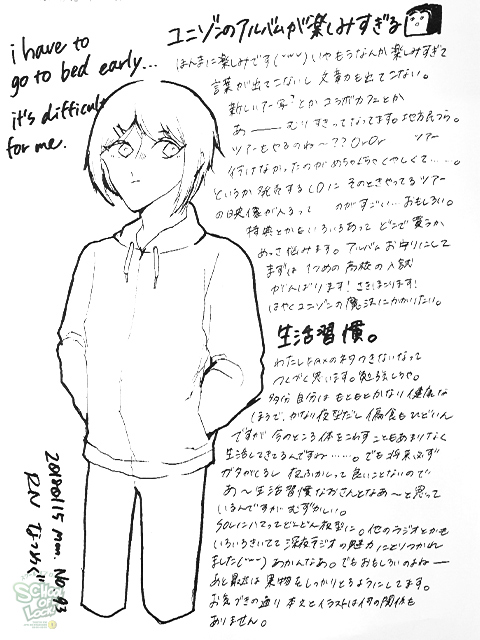 i have to
go to bed early...
it's difficult
for me.
ユニゾンのアルバムが楽しみすぎる
ほんまに楽しみです いやもうなんか楽しみすぎて
言葉が出てこないし 文章かも出てこない。
新しいアー写?とか コラボカフェとか
あ―― むりすきってなてます。地方民つら。
ツアーもやるのね〜?? ツアー
行けなかったのがめちゃくちゃくやしくて……。
というか 発売するCDに そのときやってるツアー
の映像が入るって のがすごい… おもしろい。
特典とかもいろいろあって どこで買うか
めっさ悩みます。アルバム お守りにして
まずは 1つめの高校の入試
がんばります!
はやくユニゾンの魔法にかかりたい。
生活習慣。
わたしFAXのネタつきないなって
つくづく思います。勉強しろや。
多分自分は もともとかなり 健康な
ほうで、かなり夜型だし 偏食もひどいん
ですが 今のところ体をこわすこともあまりなく
生活してきてるんですね……。でも将来必ず
ガタがくるし 夜ふかしって良いことないので
あ〜生活習慣なおさんとなあ〜と思って
いるんですが むずかしい。
SOLにハマってどんどん夜型に。他のラジオとかも
いろいろきいてて 深夜ラジオの魅力にとりつかれ
ました わかんなあ。でもおもしろいのよねー
あと最近は 果物をしっかりとるようにしてます。
お気づきの通り 本文とイラストは何の関係も
ありません。
20180115 mon. No.93
RN なつめぐ
SCHOOL OF LOCK!